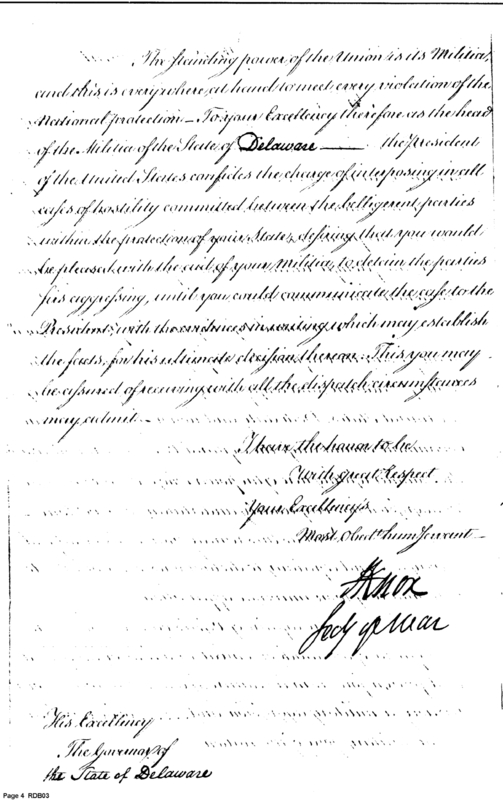 The standing power of the Union is its Militia,
and this is everywhere, at hand to meet every violation of the
National protection – To your Excellency therefore as the head
of the Militia of the State of Delaware —— the President
of the United States confides the charge of interposing in all
cases of hostility committed between the belligerent parties
within the protection of your State, desiring that you would
be pleased, with the aid of your Militia, to detain the parties
first aggressing, until you could communicate the case to the
President, with the evidences in writing which may establish
the facts, for his ultimate decision thereon. This you may
be assured of receiving with all the dispatch circumstances
may admit –
I have the honor to be
with great respect
Your Excellency's
Most Obedt hum Servant
HKnox
Secy of War
His Excellency
The Governor of
the State of Delaware
Page 4 RDB03